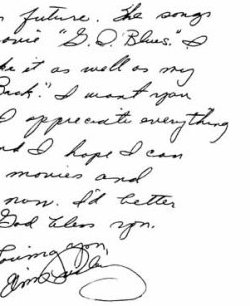 future. The songs
movie "G.I. Blues." I
it as well as my
Back." I want you
I appreciate everything
and I hope I can
movies and
now. I'd better
God bless you.
Loving you,